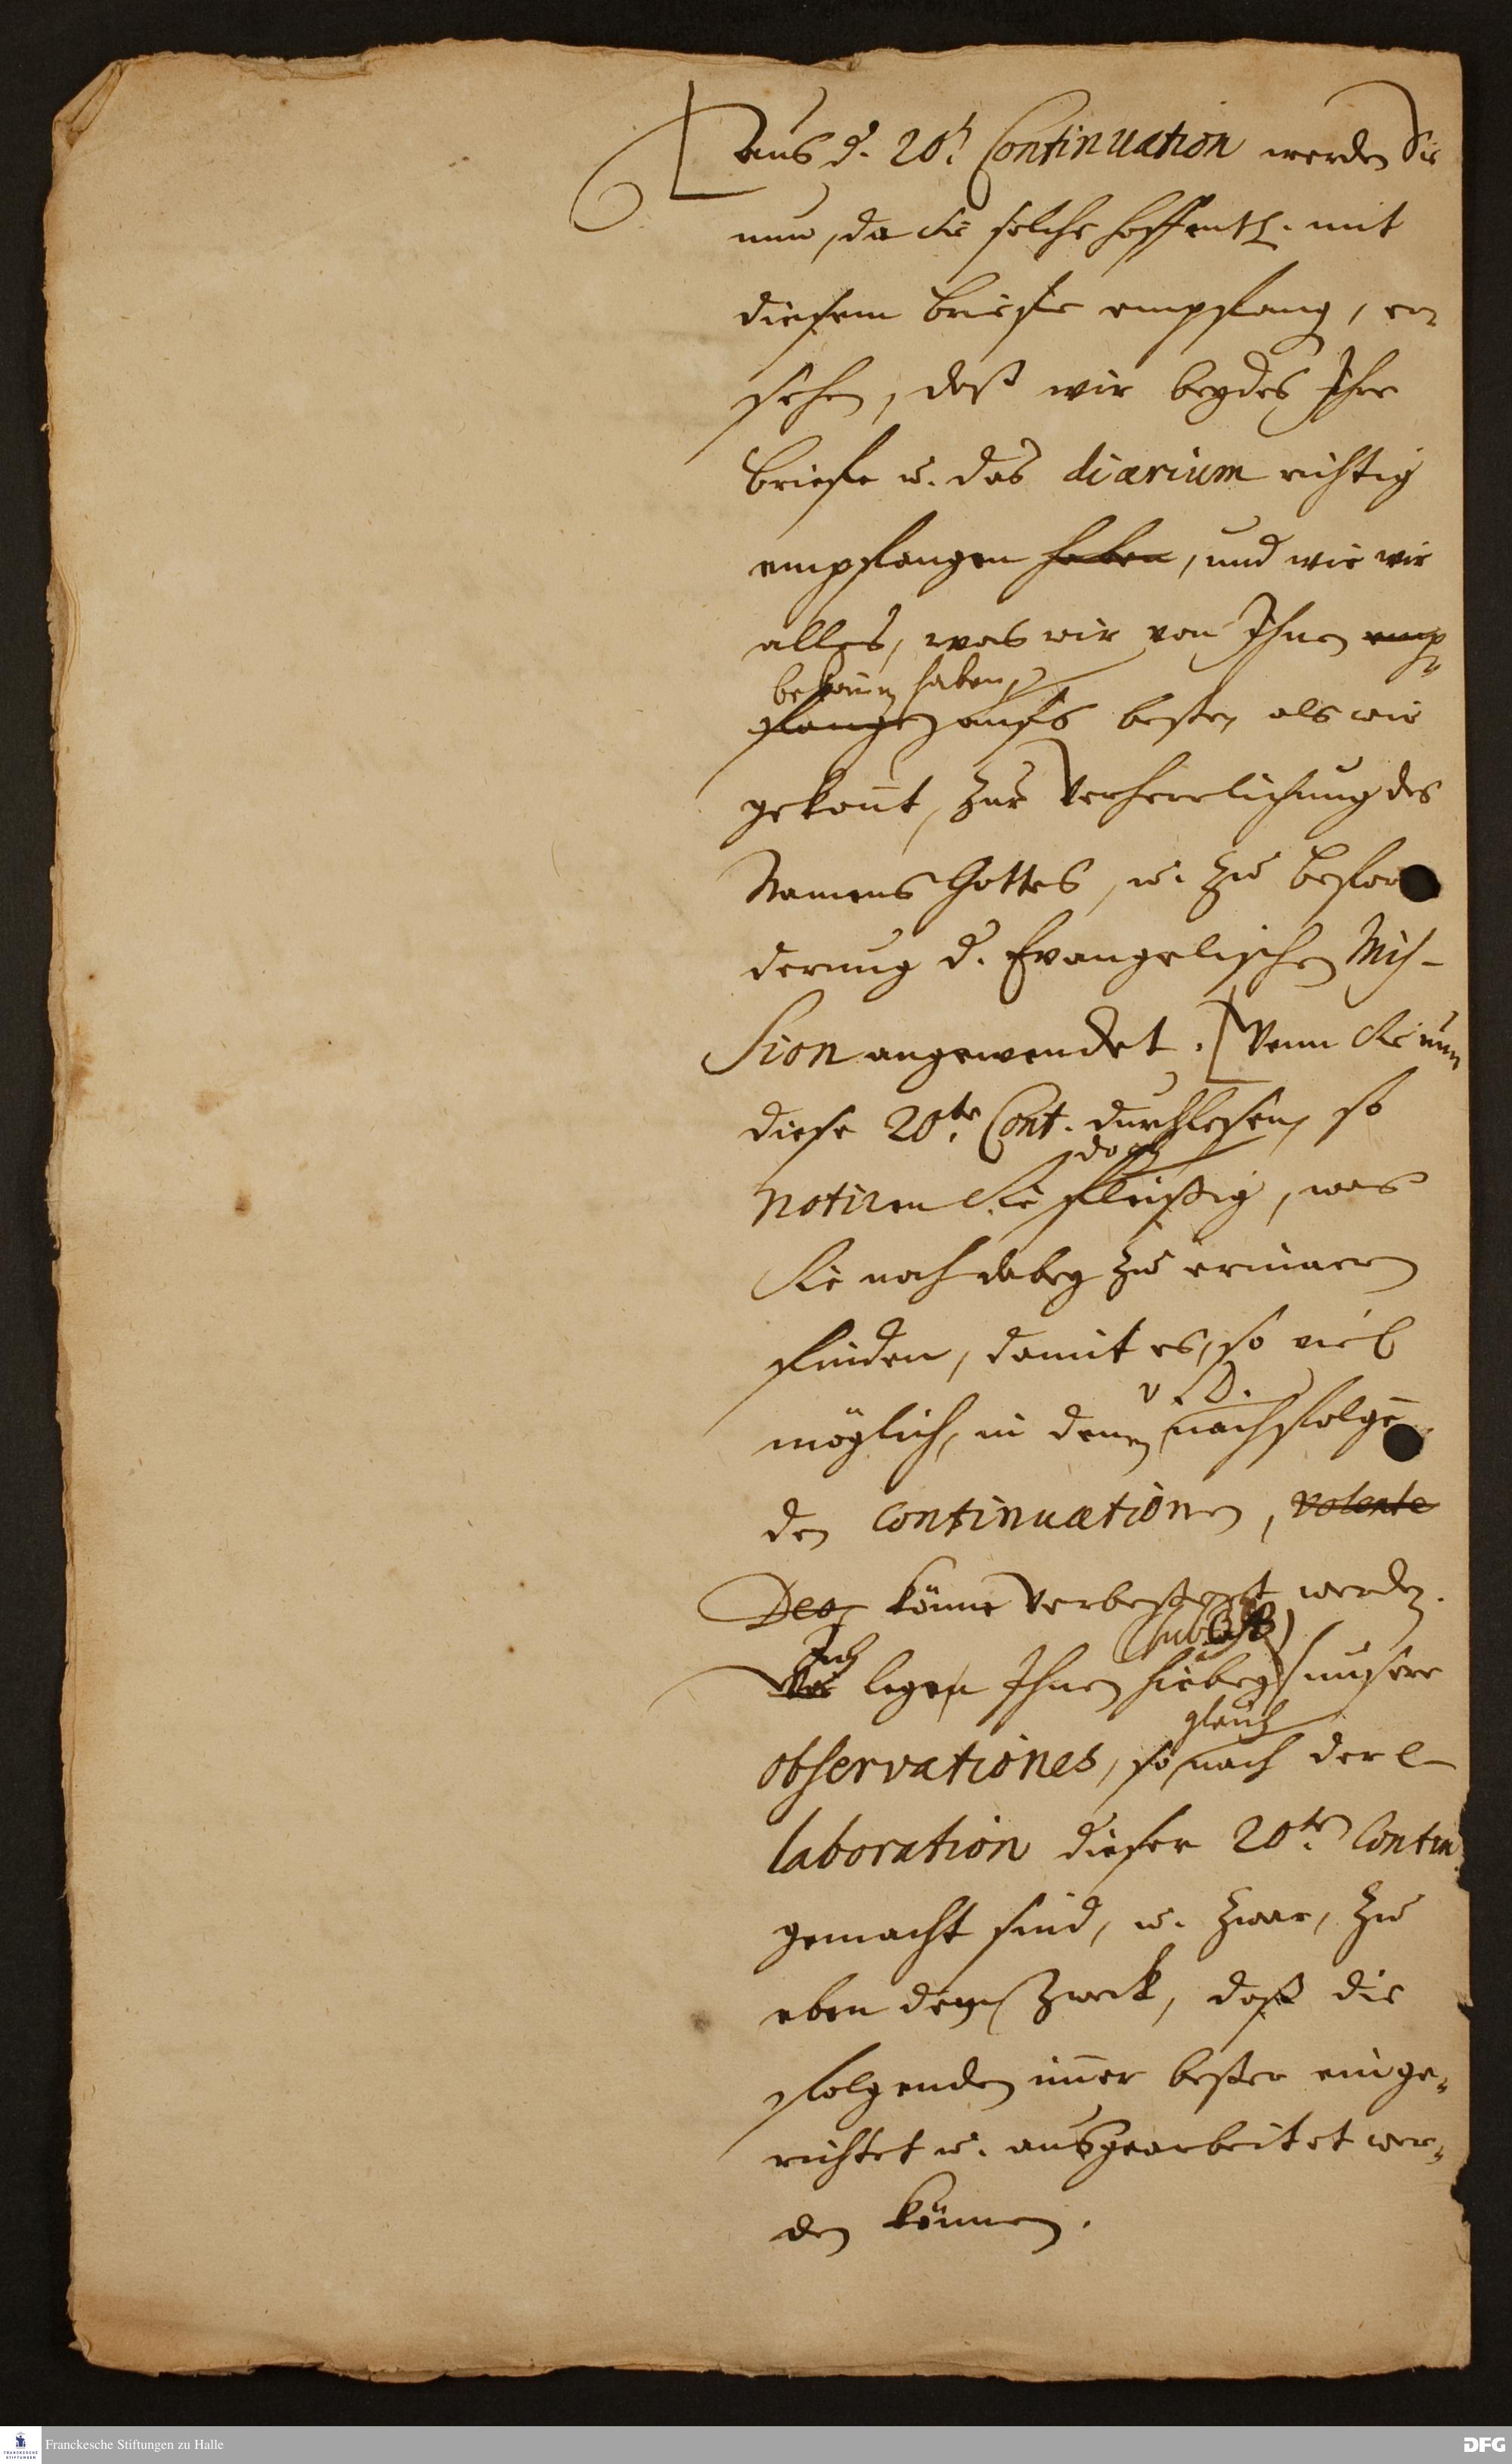 Aus d. 20t. Continuation werden Sie
nun, da Sie solche hoffentl. mit
diesem Briefe empfang, er-
sehen, daß wir beydes Ihre
Briefe u. das diarium richtig
empfangen haben, und wie wir
alles, was wir von Ihnen emp-
bekom̃en haben
fangen aufs beste, als wir
gekoñt, zur Verherrlichung des
Namens Gottes, u. zu Befor
derung d. Evangelischen Mis-
sion angewendet. Wenn Sie nun
diese 20te. Cont. durchlesen, so
doch
notiren Sie fleißig, was
Sie noch dabey zu erinnern
finden, damit es, so viel
v. D.
möglich, in denen nachfolgen
den Continuationen, volente
Deo, könne verbeßert werden.
Ich (sub
Wir legen Ihnen hiebey unsere
gleich
observationes, so nach der e-
laboration dieser 20ten. Contin.
gemacht sind, u. zwar, zu
eben dem Zweck, daß die
folgenden im̃er beßer einge-
richtet u. ausgearbeitet wer-
den können.
Franckesche Stiftungen zu Halle
DFG